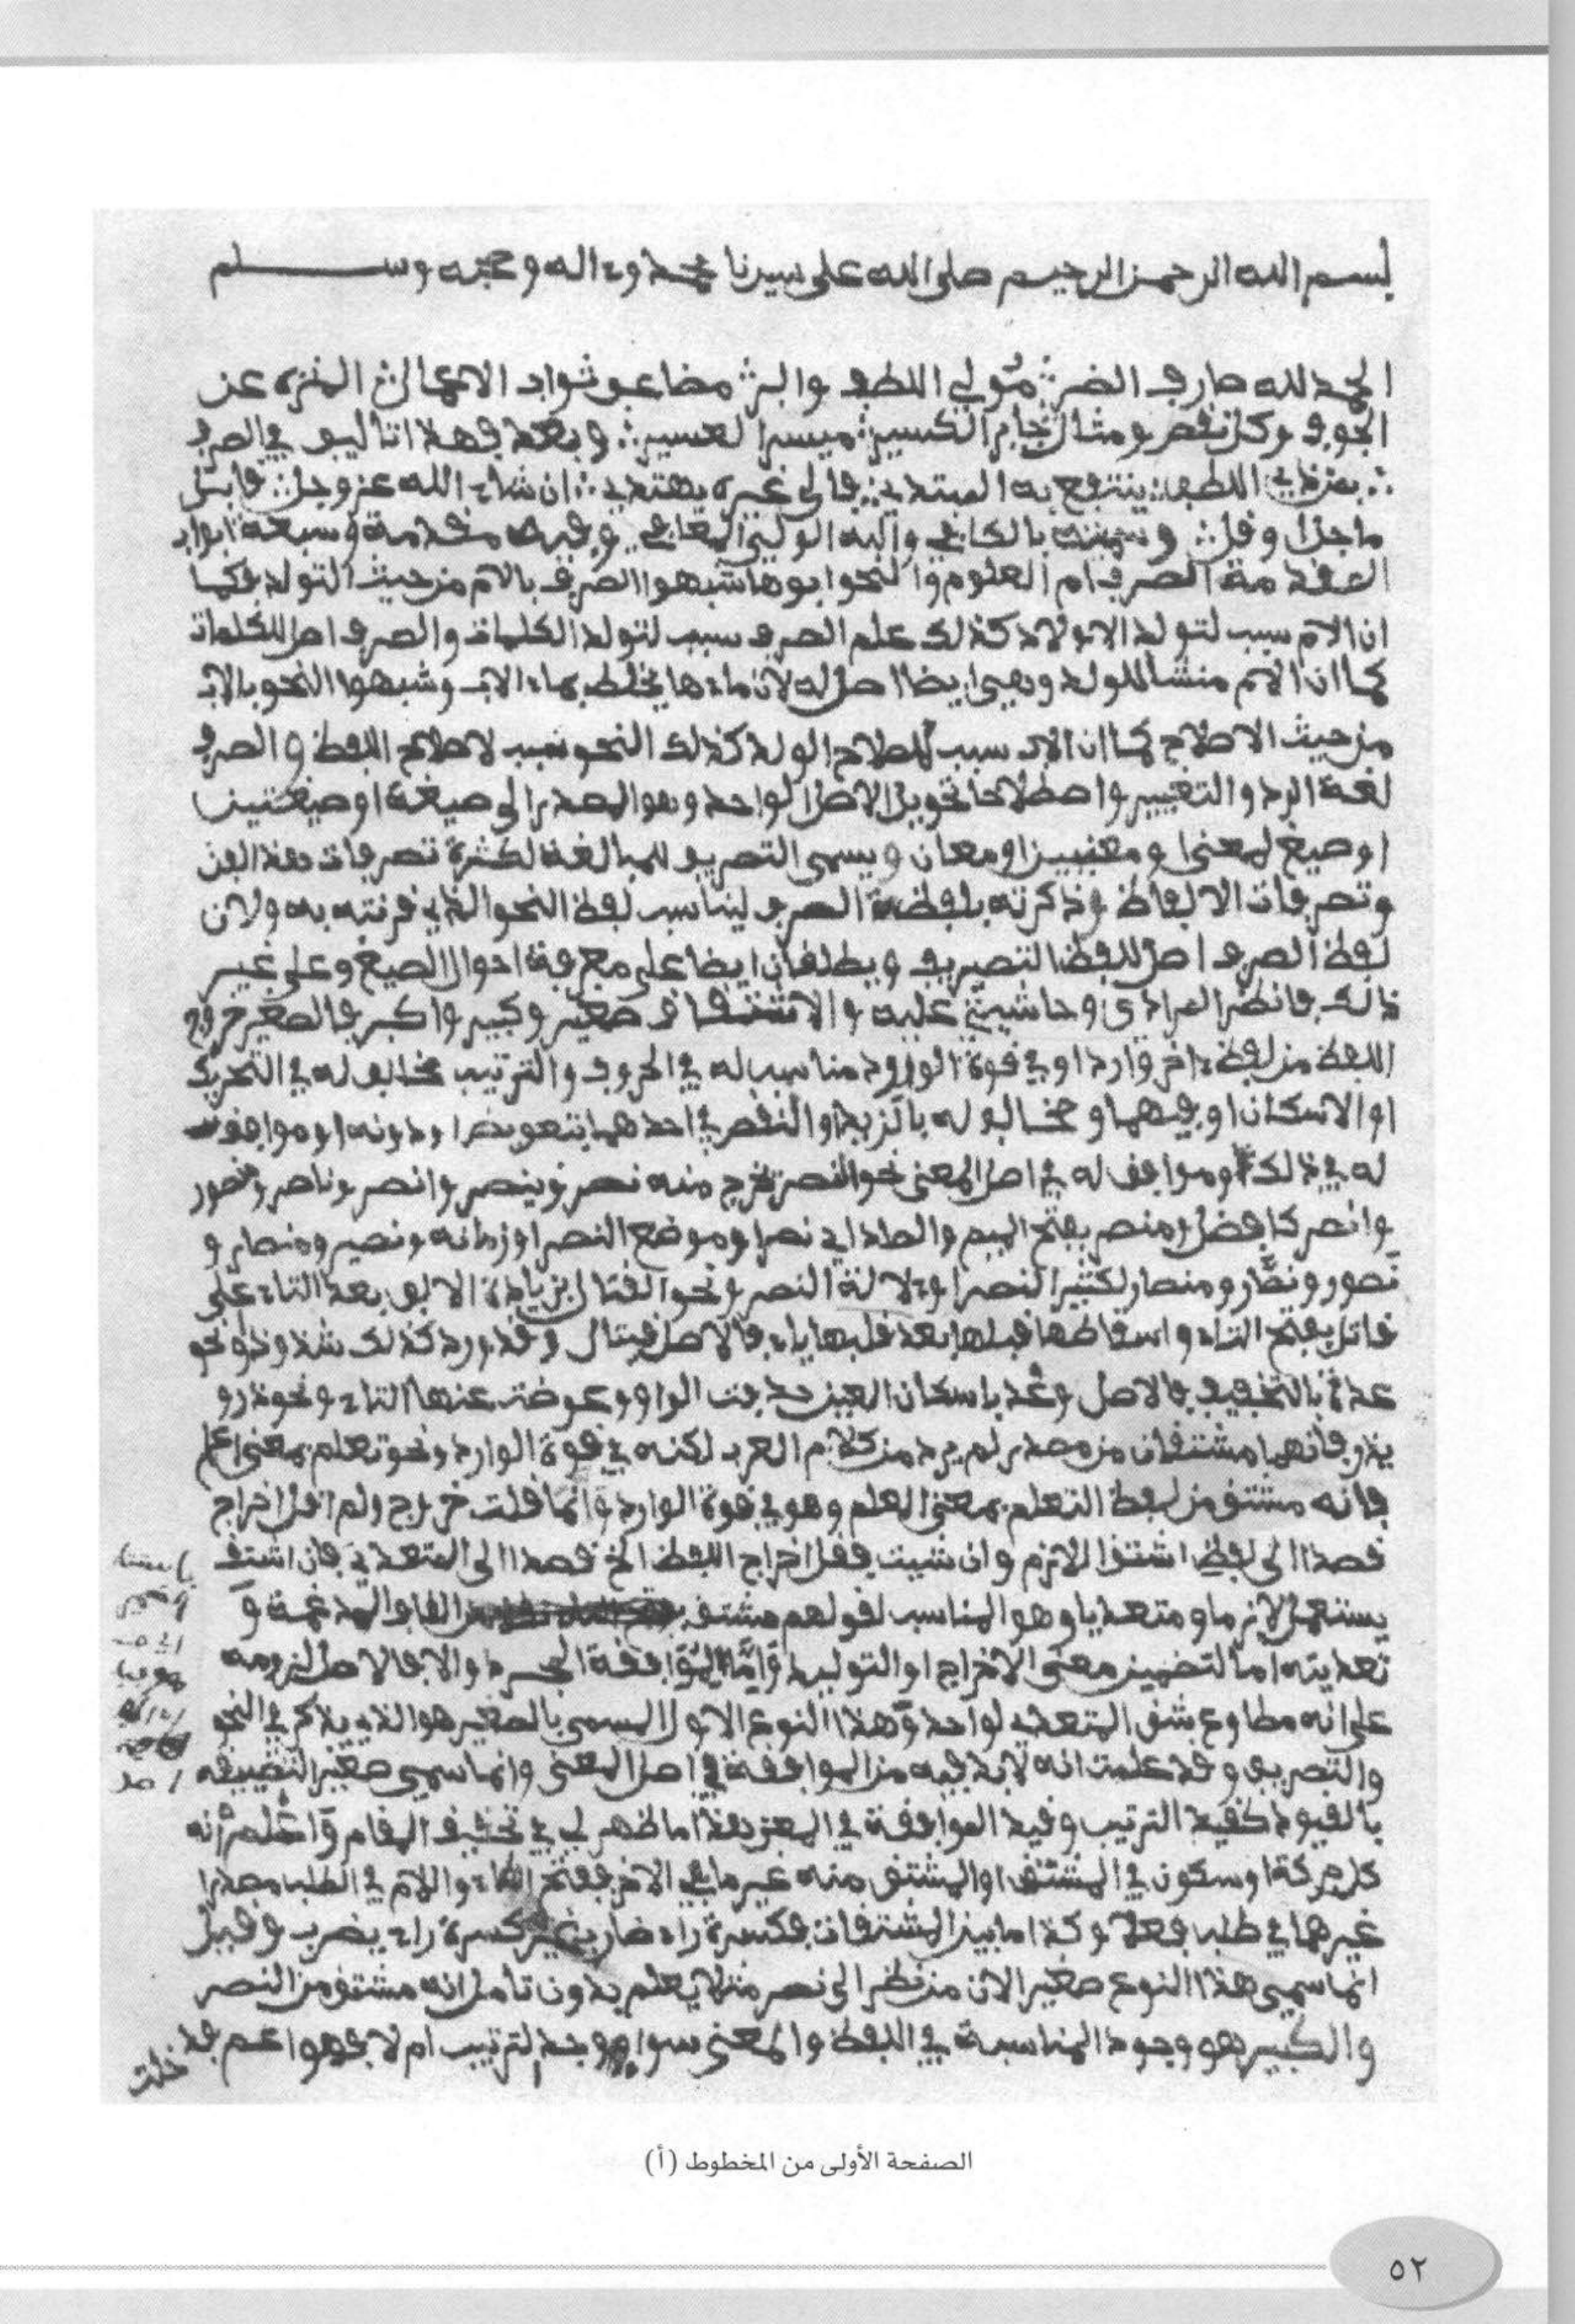 بسم الله الرحمن الرحيم صلى الله على سيدنا محمد وءاله وصحبه وسلم
الحمد لله صارف الضر مولي اللطف والبر مضاعف ثواب الاعمال المنزه عن
الجوف وكل نقص ومثال جابر الكسير ميسر العسير وبعد فهذا تأليف في الصرف
بعون ذي اللطف ينتفع به المبتدي فالى غيره يهتدي ان شاء الله عز وجل
ما جل وقل وسميته بالكافي وفيه مقدمة وسبعة ابواب
المقدمة الصرف ام العلوم والنحو ابوها شبهوا الصرف بالام من حيث التولد فكما
ان الام سبب لتولد الاولاد كذلك علم الصرف سبب لتولد الكلمات والصرف اصل للكلمات
كما ان الام منشأ للولد وهي ايضا اصل له لان ماءها يختلط بماء الاب وشبهوا النحو بالاب
من حيث الاصلاح كما ان الاب سبب لاصلاح الولد كذلك النحو سبب لاصلاح اللفظ والصرف
لغة الرد والتغيير واصطلاحا تحويل الاصل الواحد وهو المصدر الى صيغة او صيغتين
او صيغ لمعنى ومعنيين او معان ويسمى التصريف للمبالغة لكثرة تصرفات هذا الفن
وتصرفات الالفاظ وذكرته بلفظة الصرف ليناسب لفظ النحو الذي قرنته به ولان
لفظ الصرف اصل للفظ التصريف ويطلقان ايضا على معرفة احوال الصيغ وعلى غير
ذلك فانظر المرادي وحاشيتي عليه والاشتقاق صغير وكبير واكبر فالصغير خروج
اللفظ من لفظ ءاخر وارد او في قوة الورود مناسب له في الحروف والترتيب مخالف له في التحريك
او الاسكان او فيهما ومخالف له بالزيد او النقص في احدهما بتعويض او دونه او موافق
له في ذلك وموافق له في اصل المعنى نحو النصر تخرج منه نصر وينصر وانصر وناصر ومنصور
وانصر كافضل ومنصر بفتح الميم والصاد اي نصر او موضع النصر او زمانه ونصير ومنصار و
نصور ونصار ومنصار لكثير النصر او ءلالة النصر ونحو القتال بزيادة الالف بعد التاء على
قاتل بفتح التاء واسقاطها قبلها بعد قلبها ياء فالاصل قيتال وقد ورد كذلك شذوذا ونحو
عدة بالتخفيف فالاصل وعد باسكان العين حذفت الواو وعوضت عنها التاء ونحو ذر و
يذر فانهما مشتقان من مصدر لم يرد من كلام العرب لكنه في قوة الوارد ونحو تعلم بمعنى اعلم
فانه مشتق من لفظ التعلم بمعنى العلم وهو في قوة الوارد وانما قلت خروج ولم اقل اخراج
قصدا الى لفظ اشتق اللازم وان شيت فقل اخراج اللفظ الخ قصدا الى المتعدي فان اشتق
يستعمل لازما ومتعديا وهو المناسب لقولهم مشتق
تعديته اما لتضمين معنى الاخراج او التوليد واما لموافقة المجرد والا فالاصل لزومه
على انه مطاوع شق المتعدي لواحد وهذا النوع الاول المسمى بالصغير هو الذي يذكر في النحو
والتصريف وقد علمت انه لابد فيه من الموافقة في اصل المعنى وانما سمي صغيرا لتضييقه
بالقيود كقيد الترتيب وقيد الموافقة في المعنى هذا ما ظهر لي في تحقيق المقام واعلم انه
كل حركة او سكون في المشتق او المشتق منه غير ما في الاخر ففتح الطاء واللام في الطلب مصدرا
غيرهما في طلب فعلا وكذا ما بين المشتقات فكسرة راء ضارب غير كسرة راء يضرب وقيل
انما سمي هذا النوع صغيرا لان من نظر الى نصر مثلا يعلم بدون تأمل انه مشتق من النصر
والكبير هو وجود المناسبة في اللفظ والمعنى سواء وجد الترتيب ام لا فهو اعم قد
خلت
الصفحة الأولى من المخطوط (أ)
٥٢